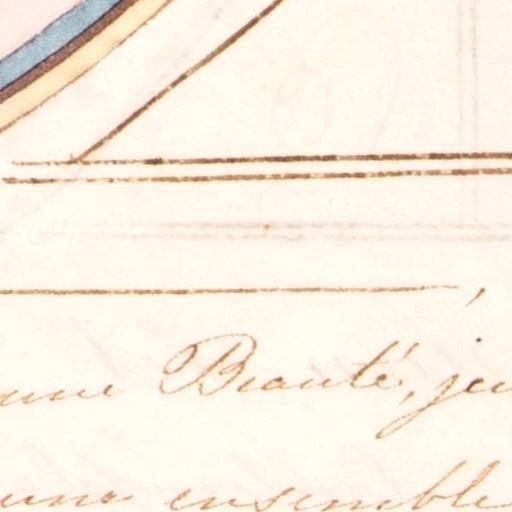 une Beauté, je
ensemble